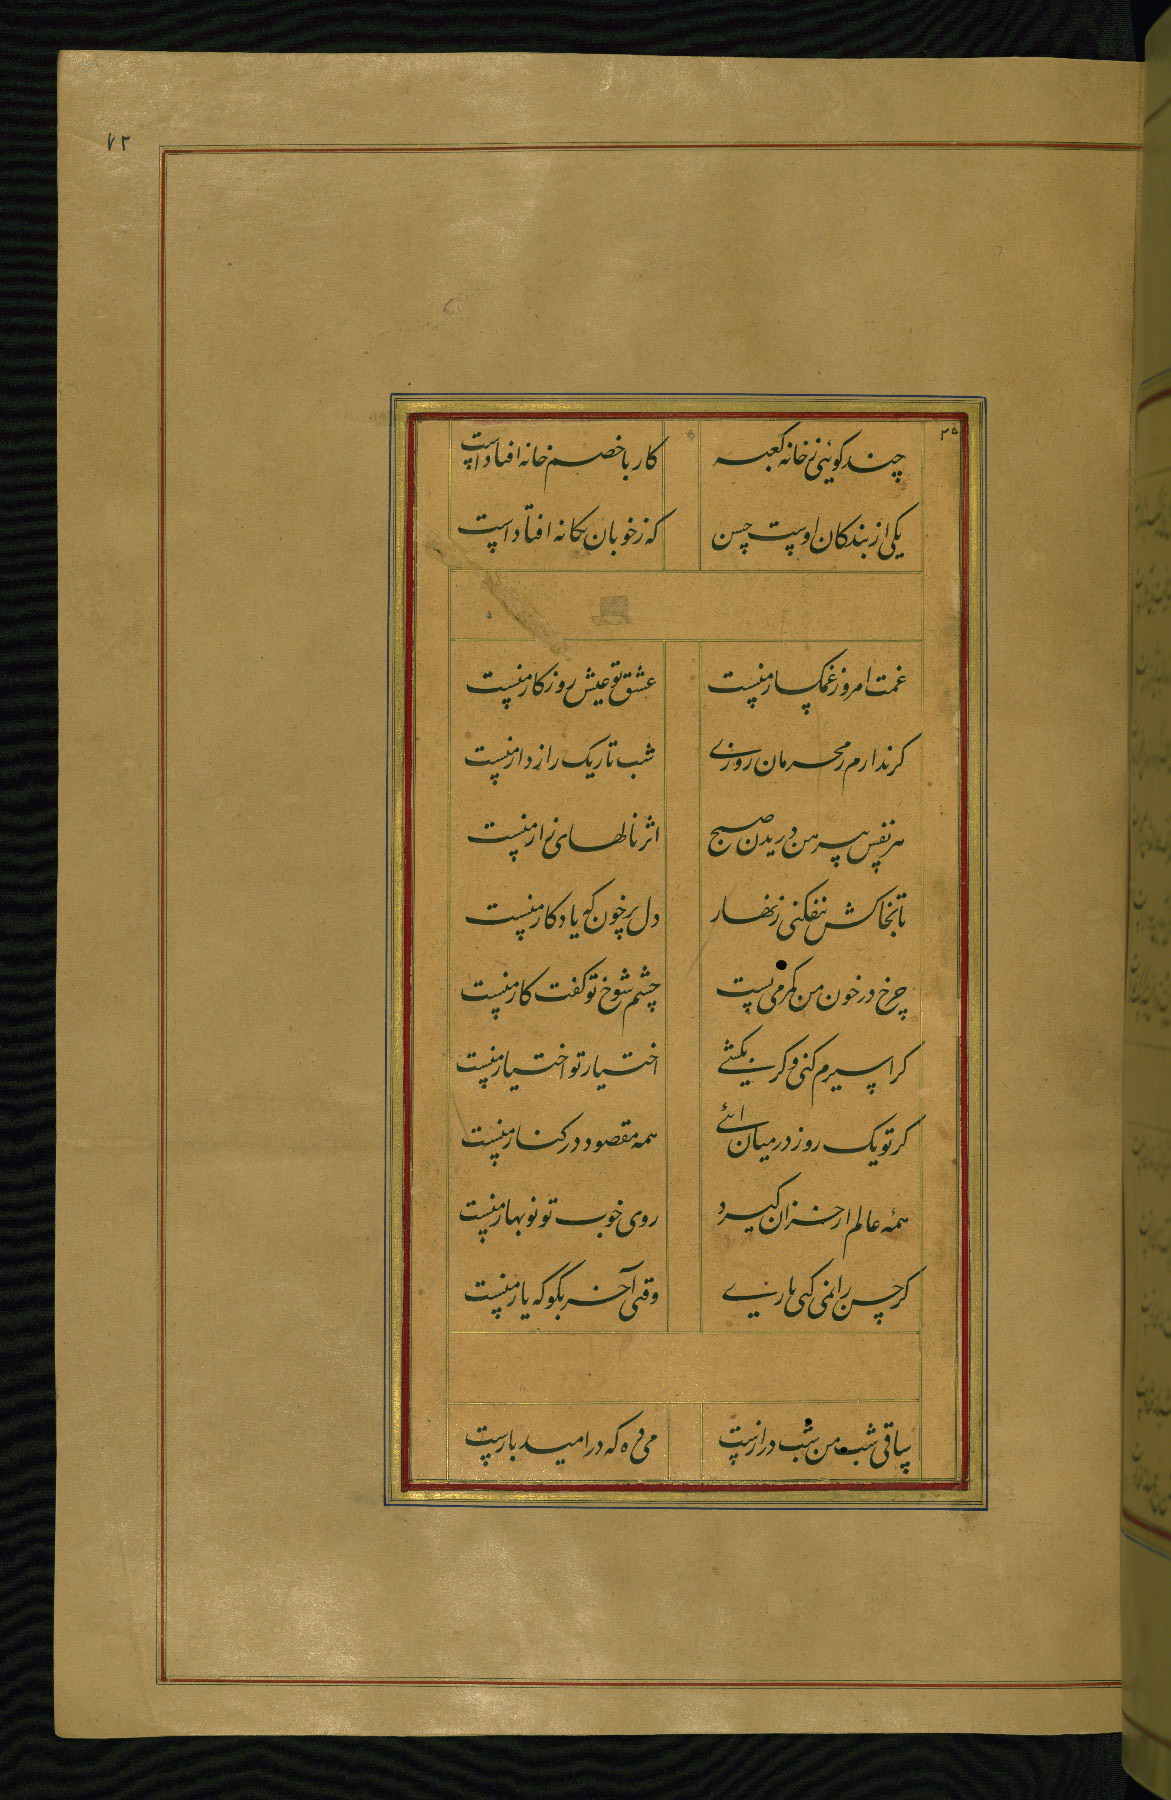 ۷۲
۳۵
چند گوئی ز خانه کعبه کار با خصم خانه افتاد است
یکی از بندگان اوست حسن که ز خوبان یگانه افتاد است
غمت امروز غمگسار منست عشق تو عیش روزگار منست
گر ندارم ز محرمان روزی شب تاریک رازدار منست
هر نفس پیرهن دریدن صبح اثر نالهای زار منست
تا بخاکش نفکنی زنهار دل پر خون که یادگار منست
چرخ در خون من کمر می بست چشم شوخ تو گفت کار منست
گر اسیرم کنی و گر بکشی اختیار تو اختیار منست
گر تو یک روز در میان ائی همه مقصود در کنار منست
همه عالم ار خزان گیرد روی خوب تو نوبهار منست
گر حسن را نمی کنی یاری وقتی آخر بگو که یار منست
ساقی شب من شب درازست می ده که در امید بازست